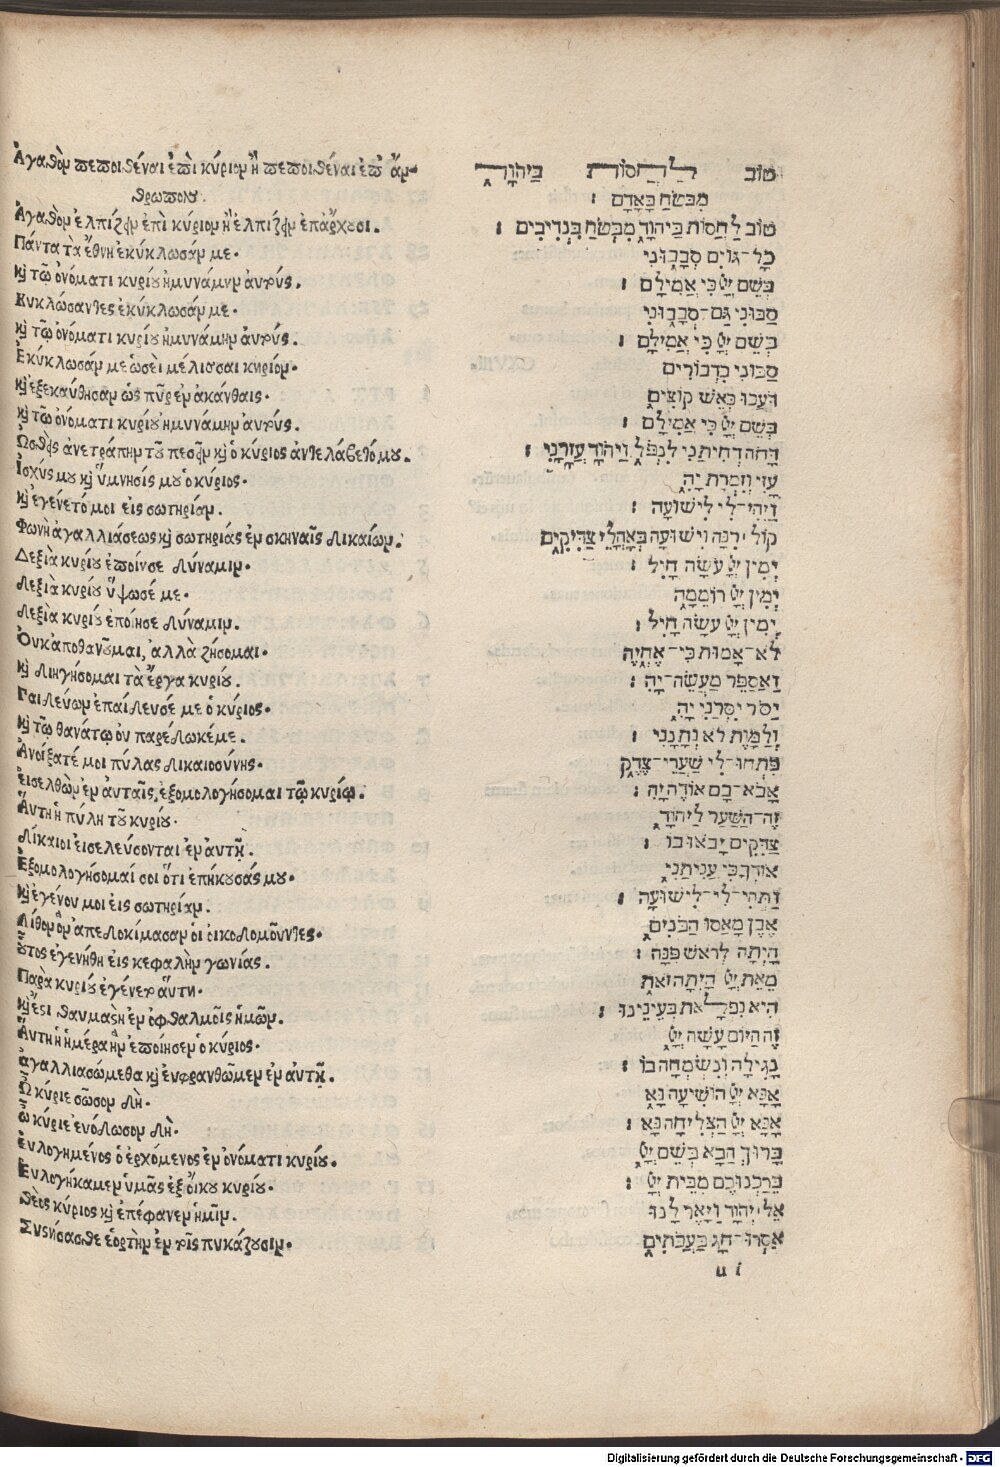 Ἀγαθὸν πεποιθέναι ἐπὶ κύριον ἢ πεποιθέναι ἐπ' ἄν-
θρωπου.
Ἀγαθὸν ἐλπίζειν ἐπὶ κύριον ἢ ἐλπίζειν ἐπάρχουσι.
Πάντα τὰ ἔθνη ἐκύκλωσάν με.
καὶ τῷ ὀνόματι κυρίου ἠμυνάμην αὐτούς.
Κυκλώσαντες ἐκύκλωσάν με.
καὶ τῷ ὀνόματι κυρίου ἠμυνάμην αὐτούς.
Ἐκύκλωσάν με ὡσεὶ μέλισσαι κηρίον.
καὶ ἐξεκαύθησαν ὡς πῦρ ἐν ἀκάνθαις.
καὶ τῷ ὀνόματι κυρίου ἠμυνάμην αὐτούς.
Ὠσθεὶς ἀνετράπην τοῦ πεσεῖν καὶ ὁ κύριος ἀντελάβετό μου.
Ἰσχύς μου καὶ ὕμνησίς μου ὁ κύριος.
καὶ ἐγένετό μοι εἰς σωτηρίαν.
Φωνὴ ἀγαλλιάσεως καὶ σωτηρίας ἐν σκηναῖς δικαίων.
Δεξιὰ κυρίου ἐποίησε δύναμιν.
δεξιὰ κυρίου ὕψωσέ με.
δεξιὰ κυρίου ἐποίησε δύναμιν.
Οὐκ ἀποθανοῦμαι, ἀλλὰ ζήσομαι.
καὶ διηγήσομαι τὰ ἔργα κυρίου.
Παιδεύων ἐπαίδευσέ με ὁ κύριος.
καὶ τῷ θανάτῳ οὐ παρέδωκέ με.
Ἀνοίξατέ μοι πύλας δικαιοσύνης.
εἰσελθὼν ἐν αὐταῖς, ἐξομολογήσομαι τῷ κυρίῳ.
Αὕτη ἡ πύλη τοῦ κυρίου.
δίκαιοι εἰσελεύσονται ἐν αὐτῇ.
Ἐξομολογήσομαί σοι ὅτι ἐπήκουσάς μου.
καὶ ἐγένου μοι εἰς σωτηρίαν.
Λίθον ὃν ἀπεδοκίμασαν οἱ οἰκοδομοῦντες.
οὗτος ἐγενήθη εἰς κεφαλὴν γωνίας.
Παρὰ κυρίου ἐγένετο αὕτη.
καὶ ἔστι θαυμαστὴ ἐν ὀφθαλμοῖς ἡμῶν.
Αὕτη ἡ ἡμέρα ἣν ἐποίησεν ὁ κύριος.
ἀγαλλιασώμεθα καὶ εὐφρανθῶμεν ἐν αὐτῇ.
Ὦ κύριε σῶσον δή.
ὦ κύριε εὐόδωσον δή.
Εὐλογημένος ὁ ἐρχόμενος ἐν ὀνόματι κυρίου.
Εὐλογήκαμεν ὑμᾶς ἐξ οἴκου κυρίου.
θεὸς κύριος καὶ ἐπέφανεν ἡμῖν.
Συστήσασθε ἑορτὴν ἐν τοῖς πυκάζουσιν.
טוֹב לַחֲסוֹת בַּיהוָֹד
מִבְּטֹחַ בָּאָדָם :
טוֹב לַחֲסוֹת בַּיהוָֹד מִבְּטֹחַ בִּנְדִיבִים :
כָּל־גּוֹיִם סְבָבוּנִי
בְּשֵׁם יְיָ כִּי אֲמִילַם :
סַבּוּנִי גַם־סְבָבוּנִי
בְּשֵׁם יְיָ כִּי אֲמִילַם :
סַבּוּנִי כִדְבוֹרִים
דֹּעֲכוּ כְּאֵשׁ קוֹצִים
בְּשֵׁם יְיָ כִּי אֲמִילַם :
דַּחֹה דְחִיתַנִי לִנְפֹּל וַיהוָֹד עֲזָרָנִי :
עָזִּי וְזִמְרָת יָהּ
וַיְהִי־לִי לִישׁוּעָה :
קוֹל רִנָּה וִישׁוּעָה בְּאָהֳלֵי צַדִּיקִים
יְמִין יְיָ עֹשָׂה חָיִל :
יְמִין יְיָ רוֹמֵמָה
יְמִין יְיָ עֹשָׂה חָיִל :
לֹא־אָמוּת כִּי־אֶחְיֶה
וַאֲסַפֵּר מַעֲשֵׂה־יָהּ :
יַסֹּר יִסְּרַנִּי יָהּ
וְלַמָּוֶת לֹא נְתָנָנִי :
פִּתְחוּ־לִי שַׁעֲרֵי־צֶדֶק
אָבֹא־בָם אוֹדֶה יָהּ :
זֶה־הַשַּׁעַר לַיהוָֹד
צַדִּיקִים יָבֹאוּ בוֹ :
אוֹדְךָ כִּי עֲנִיתָנִי
וַתְּהִי־לִי־לִישׁוּעָה :
אֶבֶן מָאֲסוּ הַבּוֹנִים
הָיְתָה לְרֹאשׁ פִּנָּה :
מֵאֵת יְיָ הָיְתָה זֹּאת
הִיא נִפְלָאת בְּעֵינֵינוּ :
זֶה הַיּוֹם עָשָׂה יְיָ
נָגִילָה וְנִשְׂמְחָה בוֹ :
אָנָּא יְיָ הוֹשִׁיעָה נָּא
אָנָּא יְיָ הַצְלִיחָה נָּא :
בָּרוּךְ הַבָּא בְּשֵׁם יְיָ
בֵּרַכְנוּכֶם מִבֵּית יְיָ :
אֵל יְהוָֹד וַיָּאֶר לָנוּ
אִסְרוּ־חַג בַּעֲבֹתִים
u i
Digitalisierung gefördert durch die Deutsche Forschungsgemeinschaft - DFG